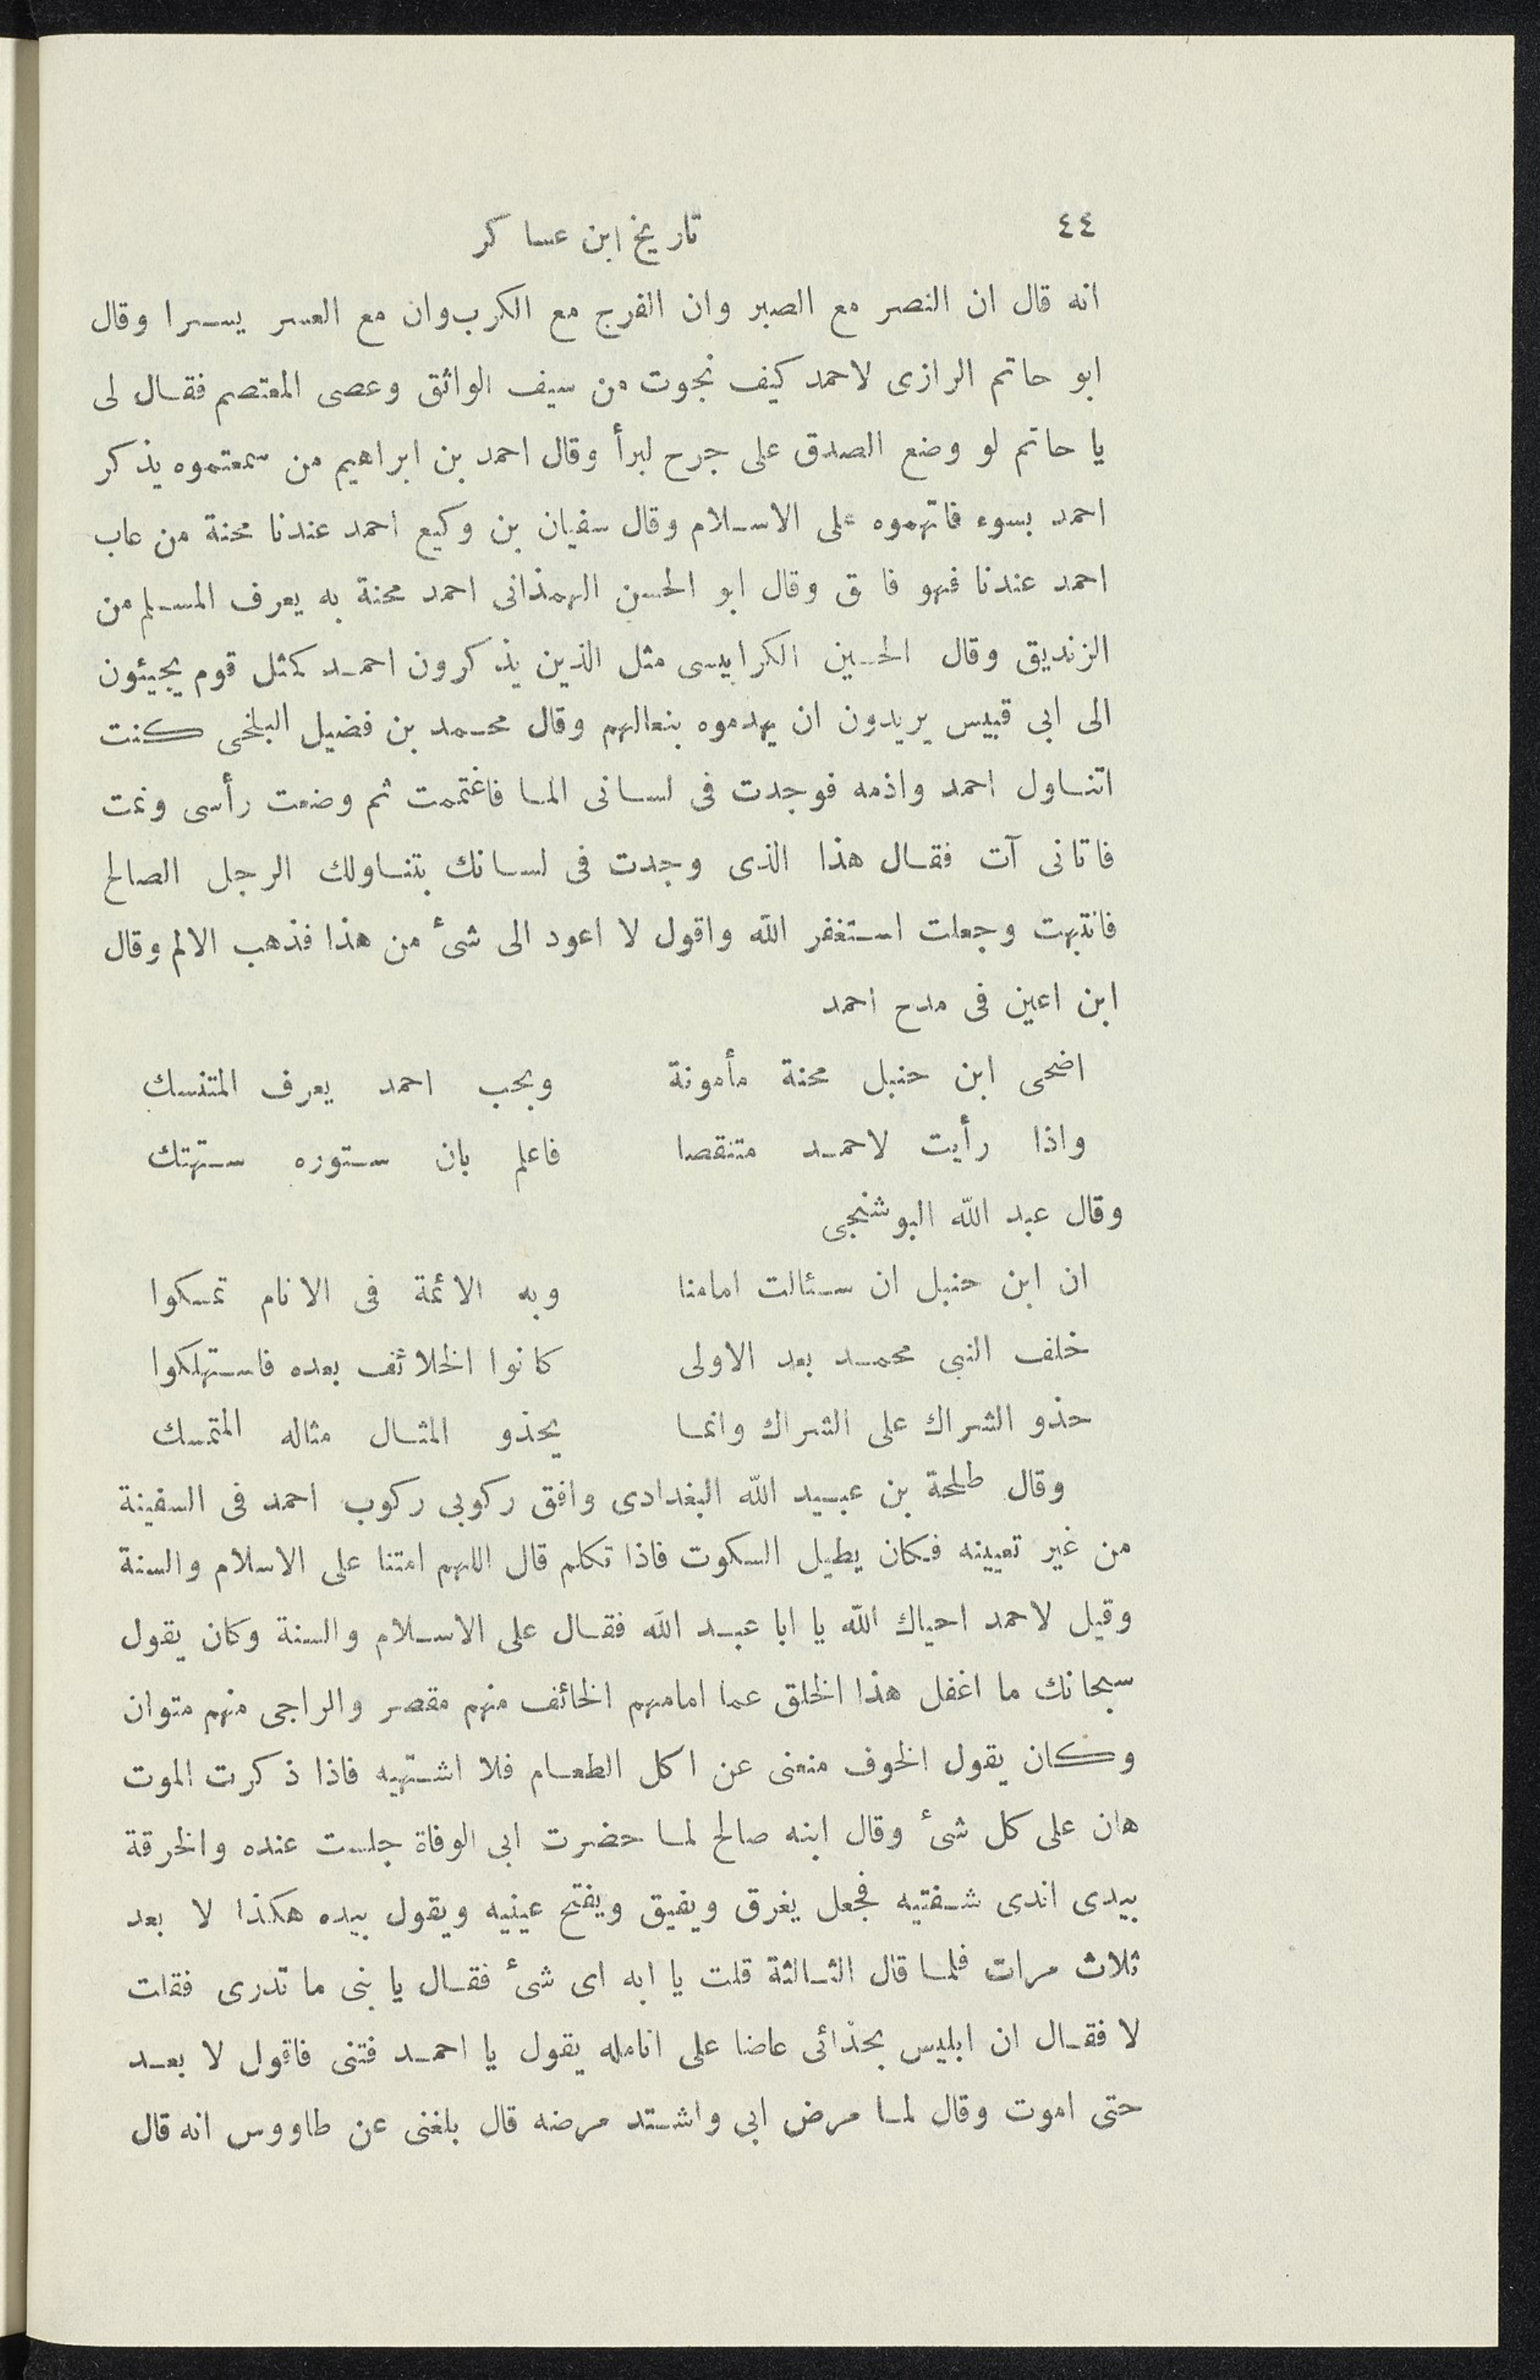 ٤٤ تاريخ ابن عساكر
انه قال ان النصر مع الصبر وان الفرج مع الكرب وان مع العسر يسرا وقال
ابو حاتم الرازى لاحمد كيف نجوت من سيف الواثق وعصى المعتصم فقال لى
يا حاتم لو وضع الصدق على جرح لبرأ وقال احمد بن ابراهيم من سمعتموه يذكر
احمد بسوء فاتهموه على الاسلام وقال سفيان بن وكيع احمد عندنا محنة من عاب
احمد عندنا فهو فا ق وقال ابو الحسن الهمذانى احمد محنة به يعرف المسلم من
الزنديق وقال الحسين الكرابيسى مثل الذين يذكرون احمد كمثل قوم يجيئون
الى ابى قبيس يريدون ان يهدموه بنعالهم وقال محمد بن فضيل البلخى كنت
اتناول احمد واذمه فوجدت فى لسانى الما فاغتممت ثم وضعت رأسى ونمت
فاتانى آت فقال هذا الذى وجدت فى لسانك بتناولك الرجل الصالح
فانتبهت وجعلت استغفر الله واقول لا اعود الى شئ من هذا فذهب الالم وقال
ابن اعين فى مدح احمد
اضحى ابن حنبل محنة مأمونة وبحب احمد يعرف المتنسك
واذا رأيت لاحمد متنقصا فاعلم بان ستوره ستهتك
وقال عبد الله البوشنجى
ان ابن حنبل ان سئالت امامنا وبه الائمة فى الانام تمسكوا
خلف النبى محمد بعد الاولى كانوا الخلائف بعده فاستهلكوا
حذو الشراك على الشراك وانما يحذو المثال مثاله المتمسك
وقال طلحة بن عبيد الله البغدادى وافق ركوبى ركوب احمد فى السفينة
من غير تعيينه فكان يطيل السكوت فاذا تكلم قال اللهم امتنا على الاسلام والسنة
وقيل لاحمد احياك الله يا ابا عبد الله فقال على الاسلام والسنة وكان يقول
سبحانك ما اغفل هذا الخلق عما امامهم الخائف منهم مقصر والراجى منهم متوان
وكان يقول الخوف منعنى عن اكل الطعام فلا اشتهيه فاذا ذكرت الموت
هان على كل شئ وقال ابنه صالح لما حضرت ابى الوفاة جلست عنده والخرقة
بيدى اندى شفتيه فجعل يغرق ويفيق ويفتح عينيه ويقول بيده هكذا لا بعد
ثلاث مرات فلما قال الثالثة قلت يا ابه اى شئ فقال يا بنى ما تدرى فقلت
لا فقال ان ابليس بحذائى عاضا على انامله يقول يا احمد فتنى فاقول لا بعد
حتى اموت وقال لما مرض ابى واشتد مرضه قال بلغنى عن طاووس انه قال